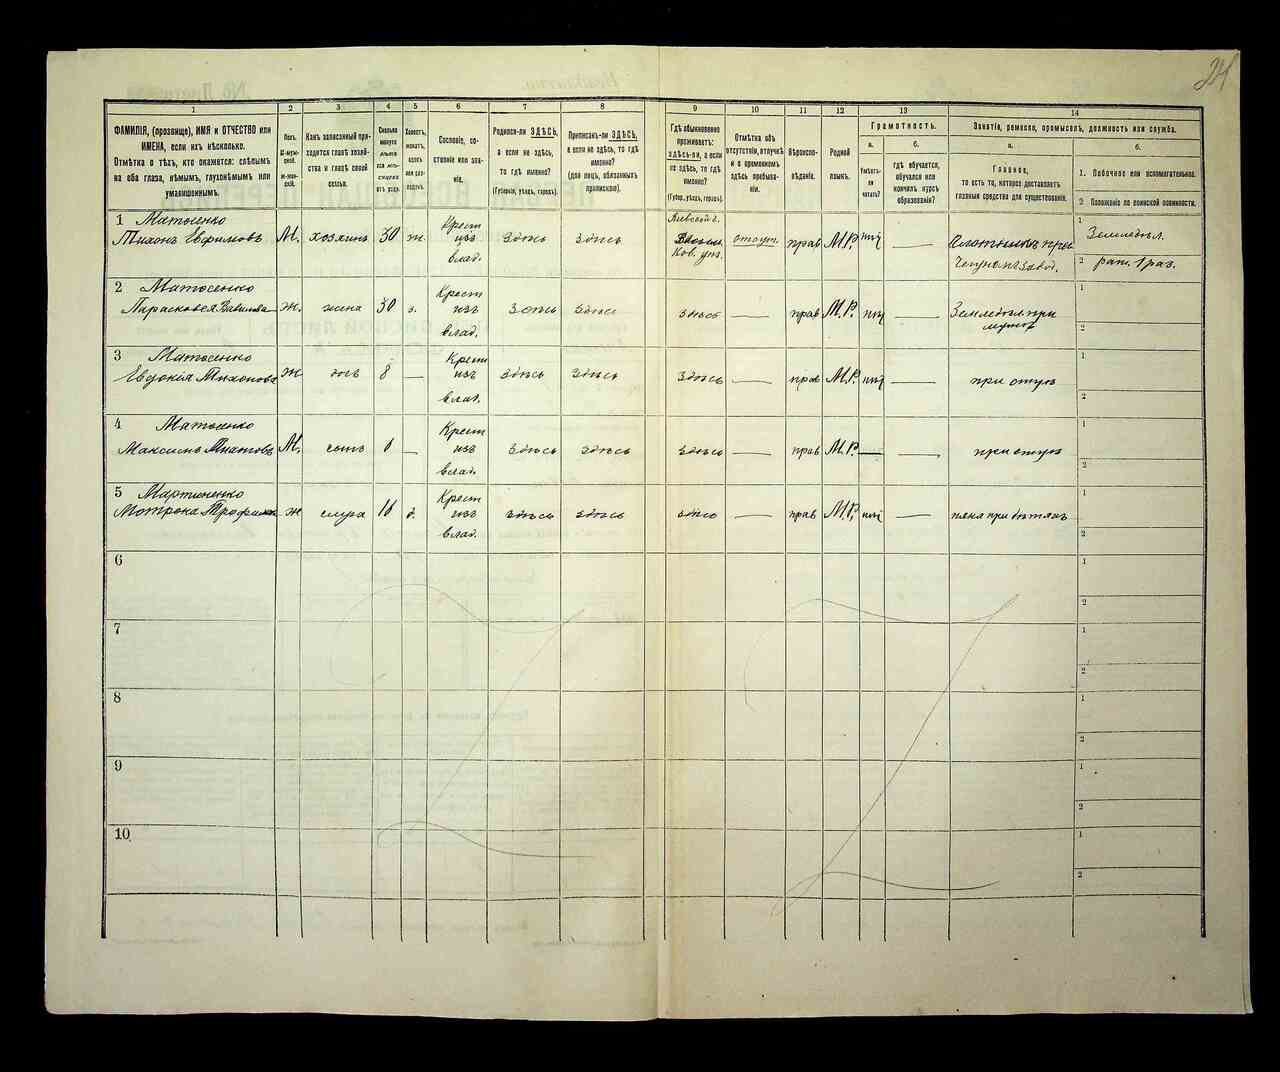 24
1
2
3
4
5
6
7
8
9
10
11
12
13
14
ФАМИЛІЯ, (прозвище), ИМЯ и ОТЧЕСТВО или
ИМЕНА, если ихъ нѣсколько.
Отмѣтка о тѣхъ, кто окажется: слѣпымъ
на оба глаза, нѣмымъ, глухонѣмымъ или
умалишеннымъ.
Полъ.
М-муж-
ской.
Ж-жен-
скій.
Какъ записанный при-
ходится главѣ хозяй-
ства и главѣ своей
семьи.
Сколько
минуло
лѣтъ
Холостъ,
женатъ,
вдовъ
или раз-
веденъ.
Сословіе, со-
стояніе или зва-
ніе.
Родился-ли ЗДѢСЬ,
а если не здѣсь,
то гдѣ именно?
(Губернія, уѣздъ, городъ).
Приписанъ-ли ЗДѢСЬ,
а если не здѣсь, то гдѣ
именно?
(для лицъ, обязанныхъ
припискою).
Гдѣ обыкновенно
проживаетъ:
здѣсь-ли, а если
не здѣсь, то гдѣ
именно?
(Губер., уѣздъ, городъ).
Отмѣтка объ
отсутствіи, отлучкѣ
и о временномъ
здѣсь пребыва-
ніи.
Вѣроиспо-
вѣданіе.
Родной
языкъ.
Грамотность.
а.
Умѣетъ-
ли
читать?
б.
гдѣ обучается,
обучался или
кончилъ курсъ
образованія?
Занятіе, ремесло, промыселъ, должность или служба.
а.
Главное,
то есть то, которое доставляетъ
главныя средства для существованія.
б.
1. Побочное или вспомогательное.
2. Положеніе по воинской повинности.
1 Матосенко
Тихонъ Евфимовъ М. хозяинъ 30 ж. Крест изъ влад. здѣсь здѣсь Кіевской г. отсут. прав М.Р. нѣт — Плотникъ при Чегунн заводѣ. 1 Земледѣл. 2 рат. 1 раз.
2 Матосенко
Парасковея Ж. жена 30 з. Крест изъ влад. здѣсь здѣсь здѣсь — прав М.Р. нѣт — Земледѣл. при мужѣ 1 2
3 Матосенко
Евдокія Тихонова Ж дочь 8 — Крест изъ влад. здѣсь здѣсь здѣсь — прав М.Р. нѣт — при отцѣ 1 2
4 Матосенко
Максимъ М. сынъ — Крест изъ влад. здѣсь здѣсь здѣсь — прав М.Р. — — при отцѣ 1 2
5 Мартиненко
Мотрона Ж слуга д. Крест изъ влад. здѣсь здѣсь здѣсь — прав М.Р. нѣт — няня при дѣтяхъ 1 2
6 1 2
7 1 2
8 1 2
9 1 2
10 1 2